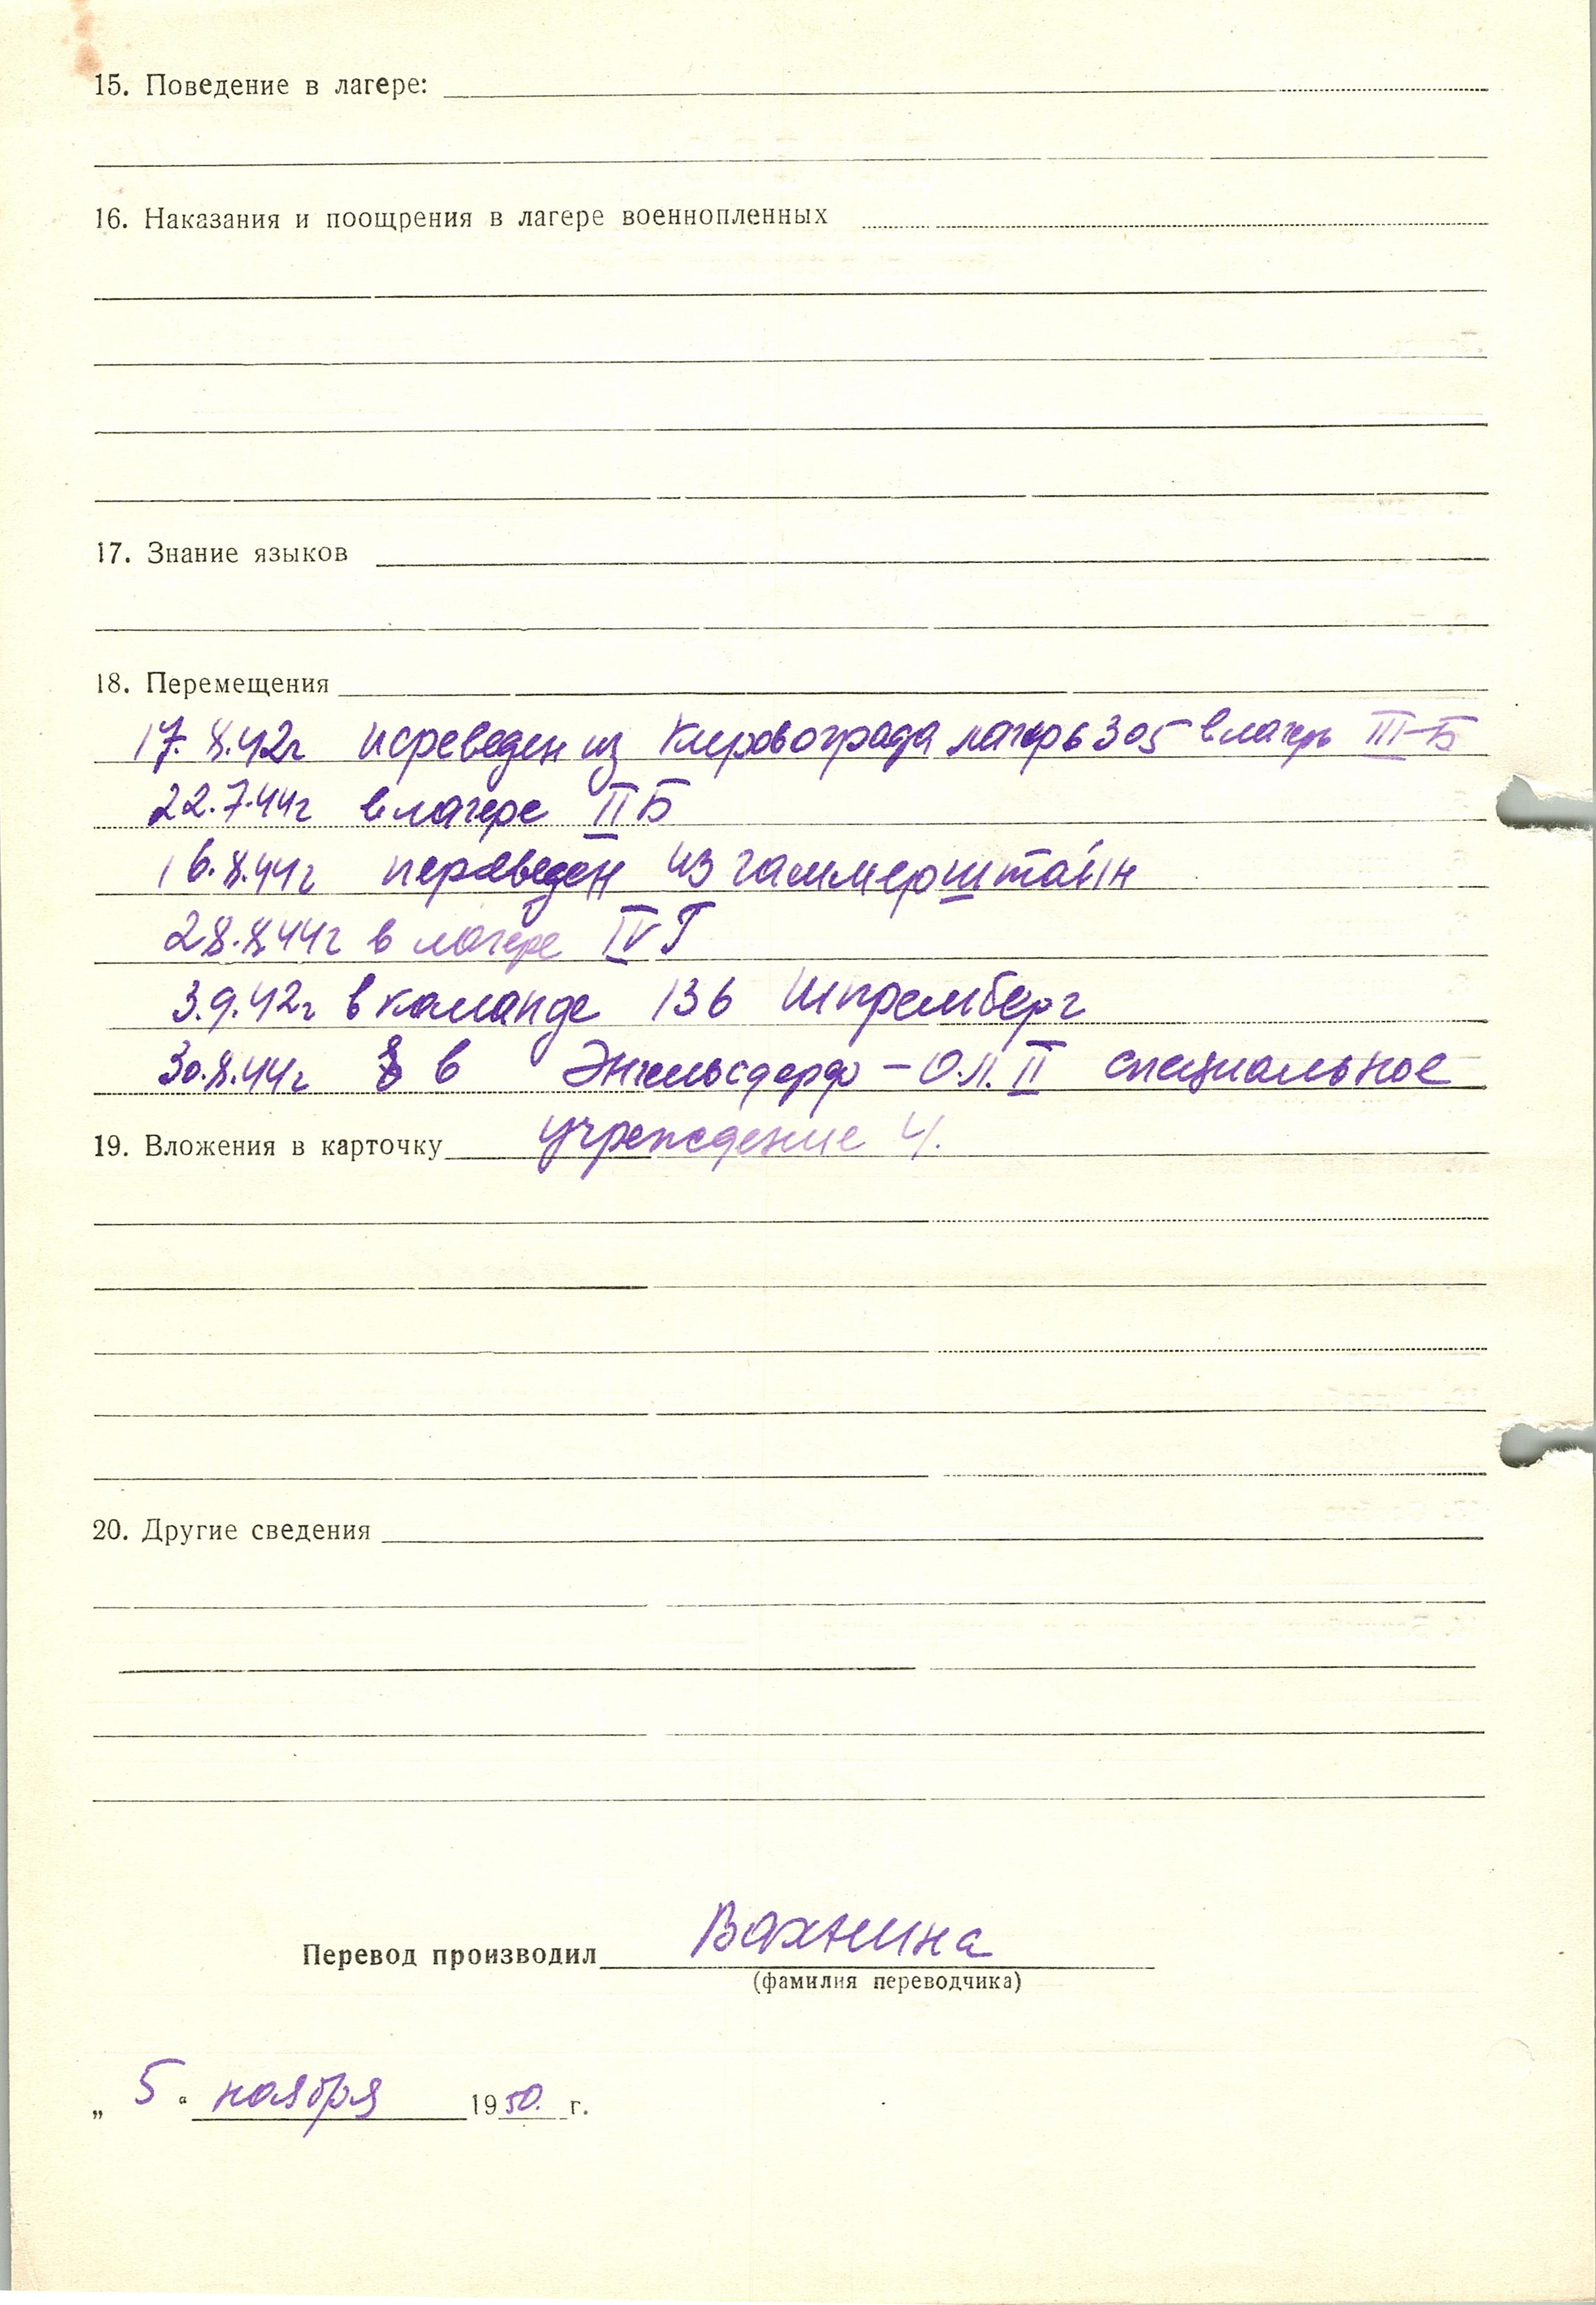 15. Поведение в лагере:
16. Наказания и поощрения в лагере военнопленных
17. Знание языков
18. Перемещения
17.8.42г переведен из Кировограда лагерь 305 в лагерь III-Б
22.7.44г в лагере II Б
16.8.44г переведен из гаммерштайн
28.8.44г в лагере IV Г
3.9.42г в команде 136 Шпремберг
30.8.44г в Энгельсдорф - О.Л. II специальное
учреждение 4.
19. Вложения в карточку
20. Другие сведения
Перевод производил Вахнина
(фамилия переводчика)
„ 5 " ноября 1950. г.